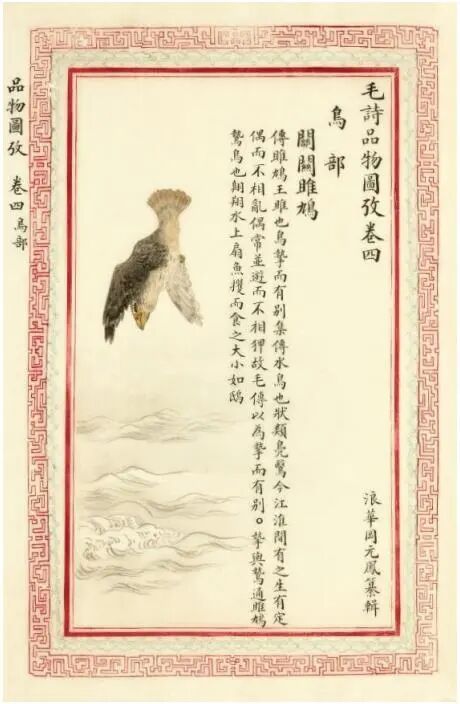 毛詩品物圖攷卷四
浪華岡元鳳纂輯
鳥部
關關雎鳩
傳雎鳩王雎也鳥摯而有别集傳水鳥也狀類鳧鷖今江淮間有之生有定
偶而不相亂偶常並遊而不相狎故毛傳以為摯而有别。摯與鷙通雎鳩
鷙鳥也翱翔水上扇魚攫而食之大小如鴟
品物圖攷 卷四鳥部